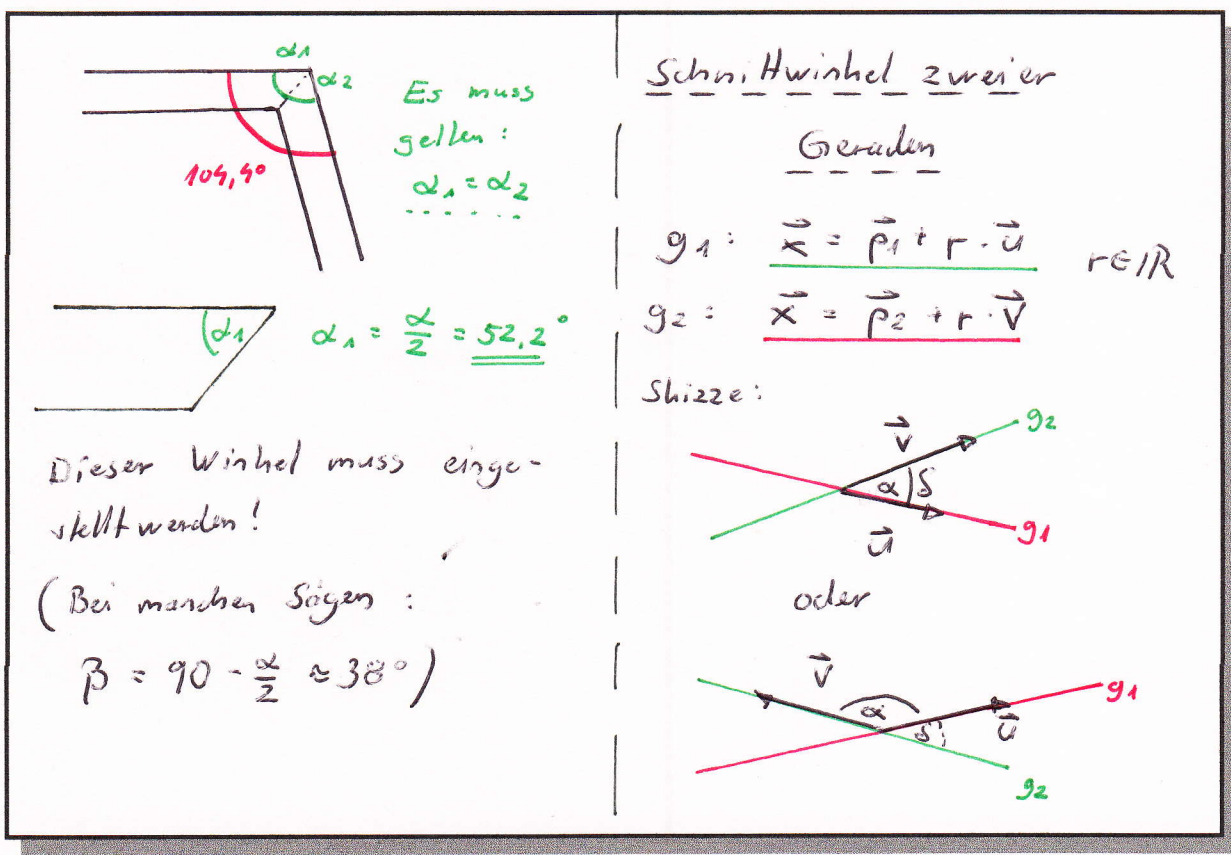 α1
α2
Es muss
gelten:
α1 = α2
104,4°
α1
α1 = α/2 = 52,2°
Dieser Winkel muss einge-
stellt werden!
(Bei manchen Sägen:
β = 90 - α/2 ≈ 38°)
Schnittwinkel zweier
Geraden
g1: x⃗ = p⃗1 + r · u⃗ r∈ℝ
g2: x⃗ = p⃗2 + r · v⃗
Skizze:
v⃗
g2
α δ
u⃗
g1
oder
v⃗
g1
α
δ
u⃗
g2